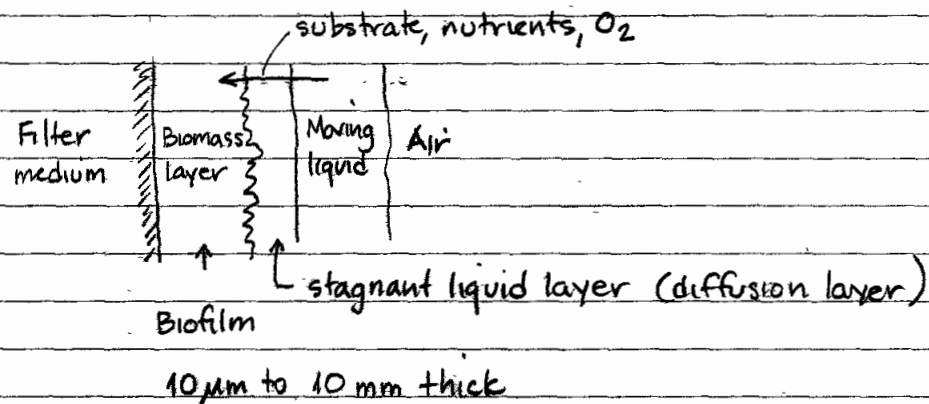 substrate, nutrients, O2
Filter medium
Biomass layer
Moving liquid
Air
stagnant liquid layer (diffusion layer)
Biofilm
10 μm to 10 mm thick